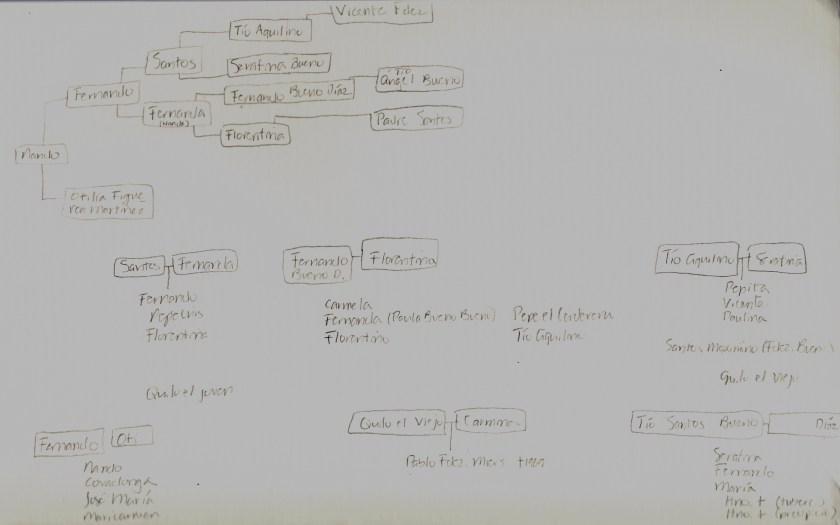 Vicente Fdez
Tío Aquilino
Santos
Serafina Bueno
Fernando
Tío
Angel Bueno
Fernando Bueno Díaz
Fernanda
(Nanda)
Padre Santos
Florentina
Nando
Otilia Figue
roa Martínez
Santos Fernanda
Fernando
Bueno D.
Florentina
Tío Aquilino Serafina
Fernando
Pepe Luis
Florentina
Carmela
Fernanda (Paula Bueno Bueno)
Florentino
Pepe el
Tío Aquilino
Pepita
Vicente
Paulina
Santos Maximino (Fdez. Bueno)
Quilo el Viejo
Quilo el joven
Fernando Oti
Quilo el Viejo Carmen
Tío Santos Bueno Díaz
Nando
Covadonga
José María
Maricarmen
Pablo Fdez.
Serafina
Fernando
María
Hno. +
Hno. +